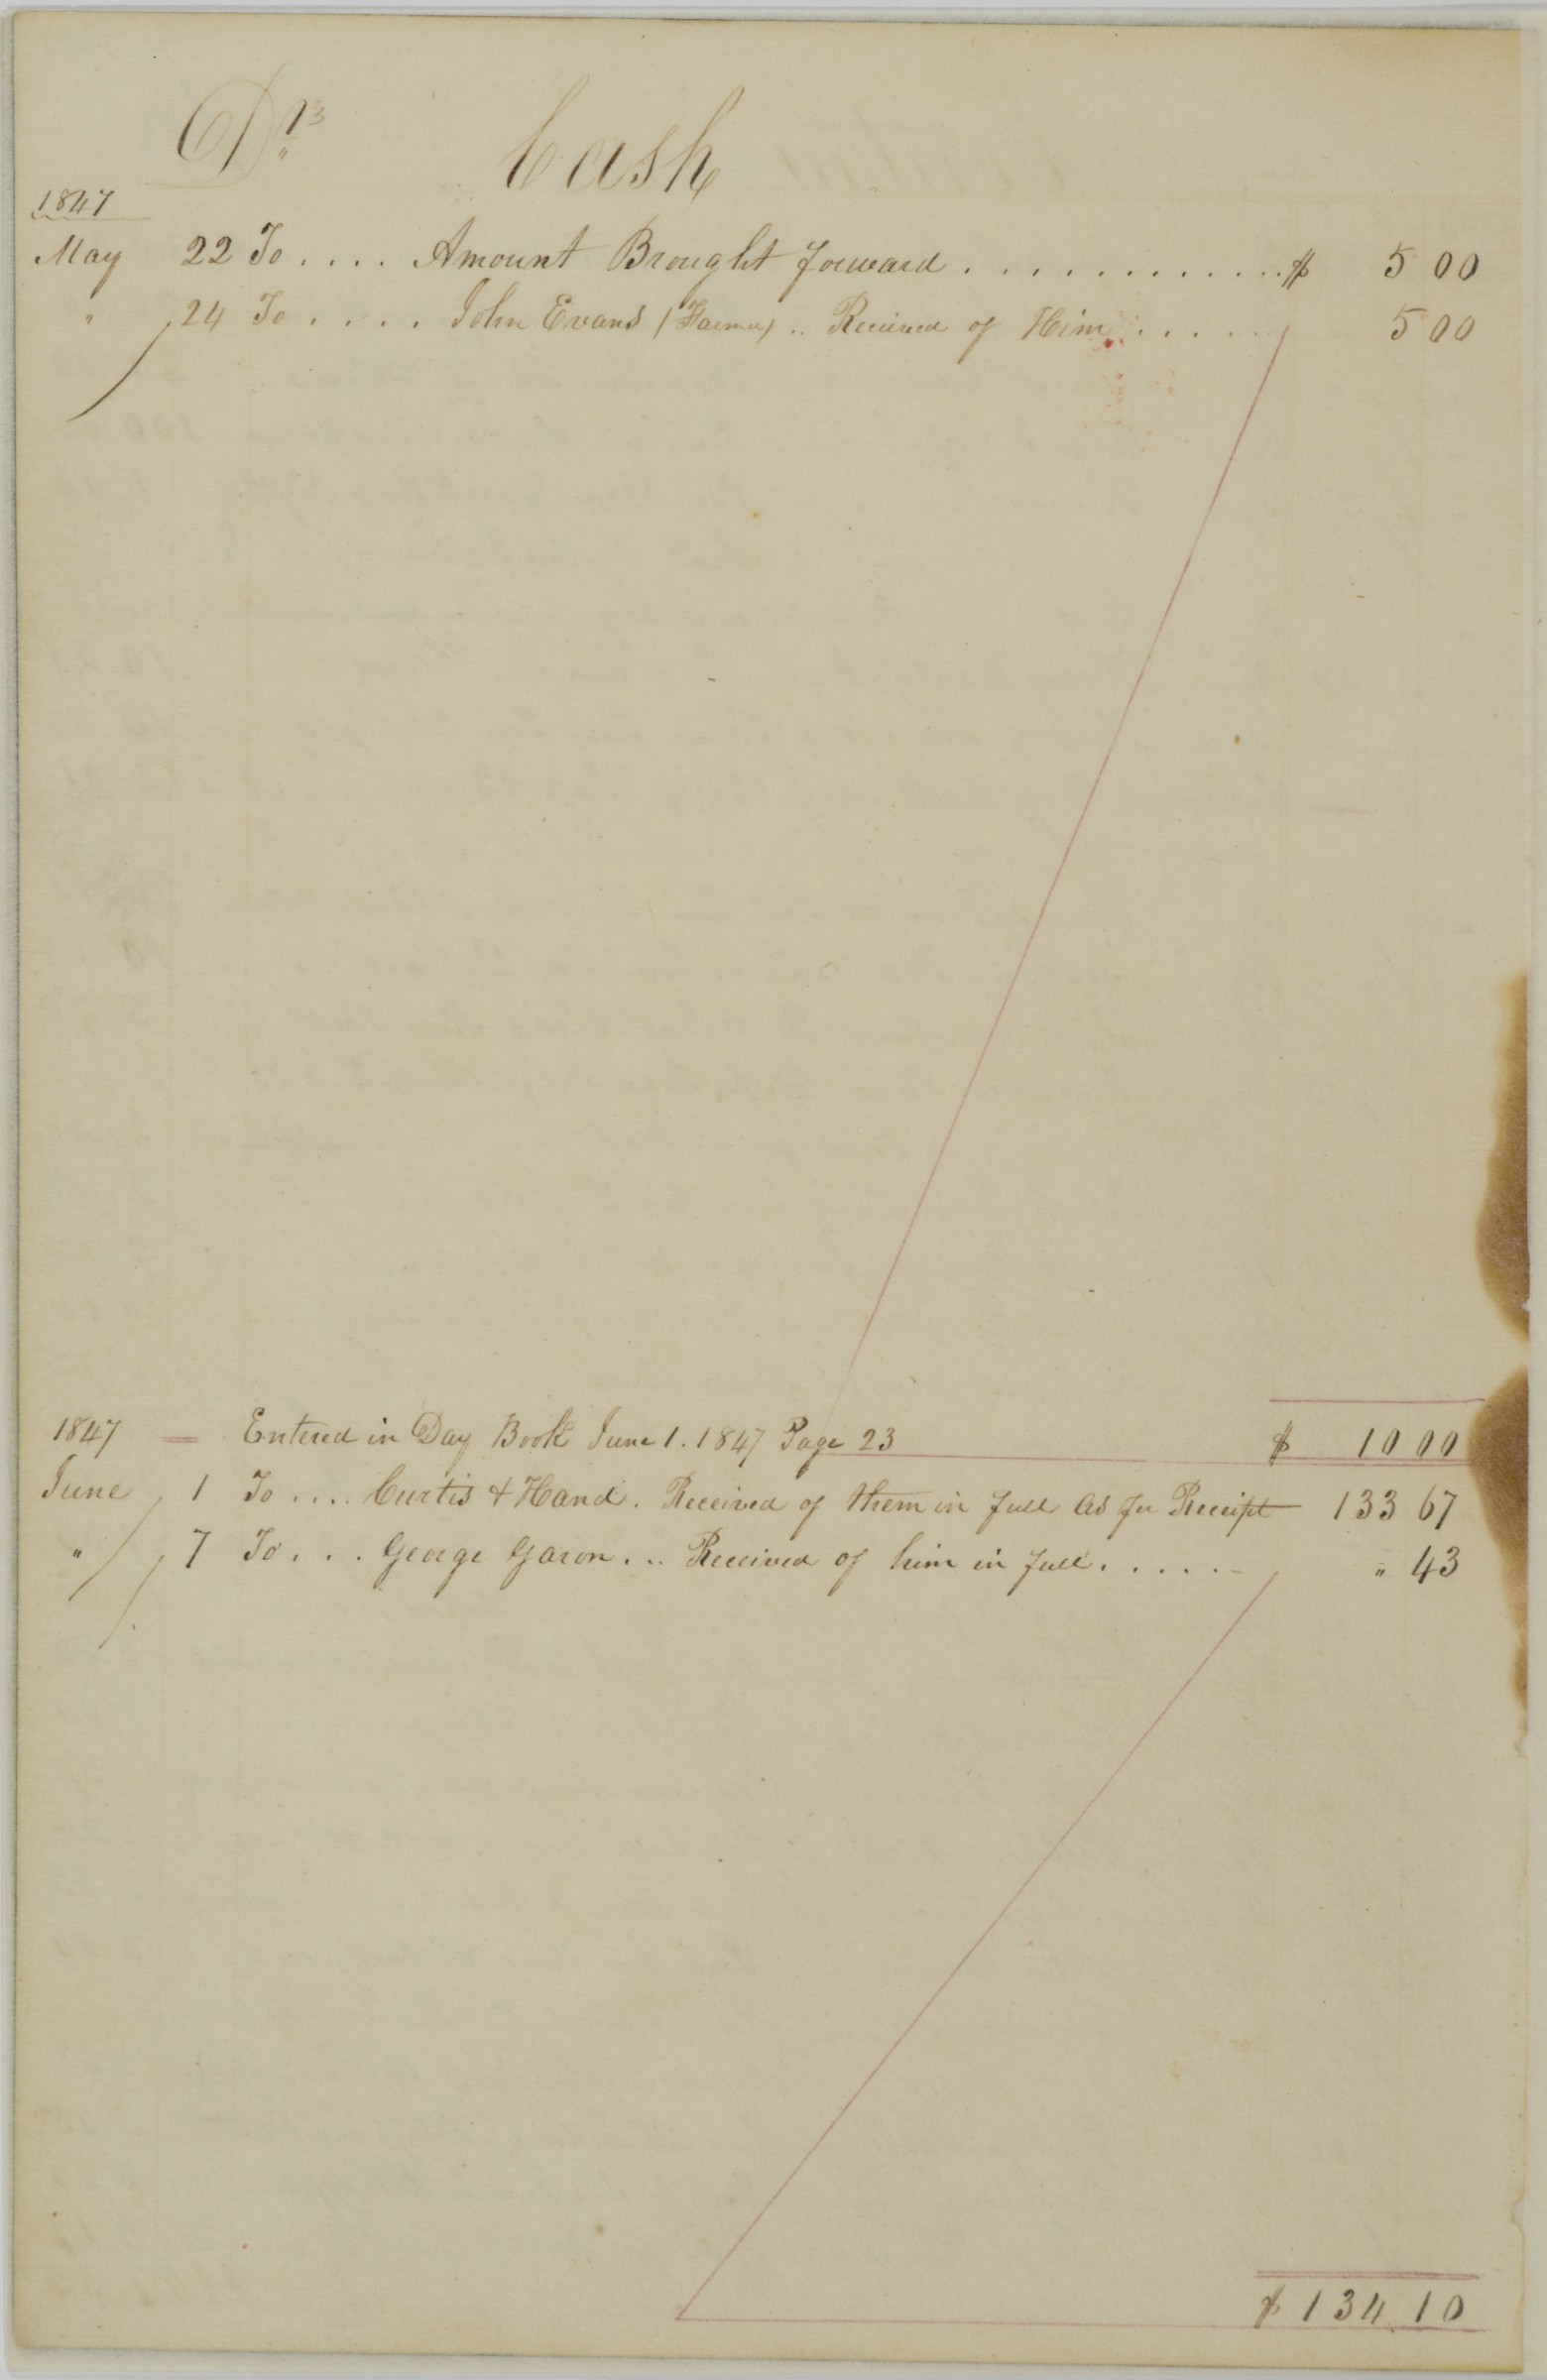 Dr Cash
1847
May 22 To .... Amount Brought forward ............. $ 5 00
" 24 To ..... John Evans (Farmer) .. Received of Him ...... 5 00
1847 = Entered in Day Book June 1. 1847 Page 23 $ 10 00
June 1 To .... Curtis & Hand. Received of them in full as per Receipt 133 67
" 7 To ... George Garon ... Received of him in full ...... " 43
$ 134 10